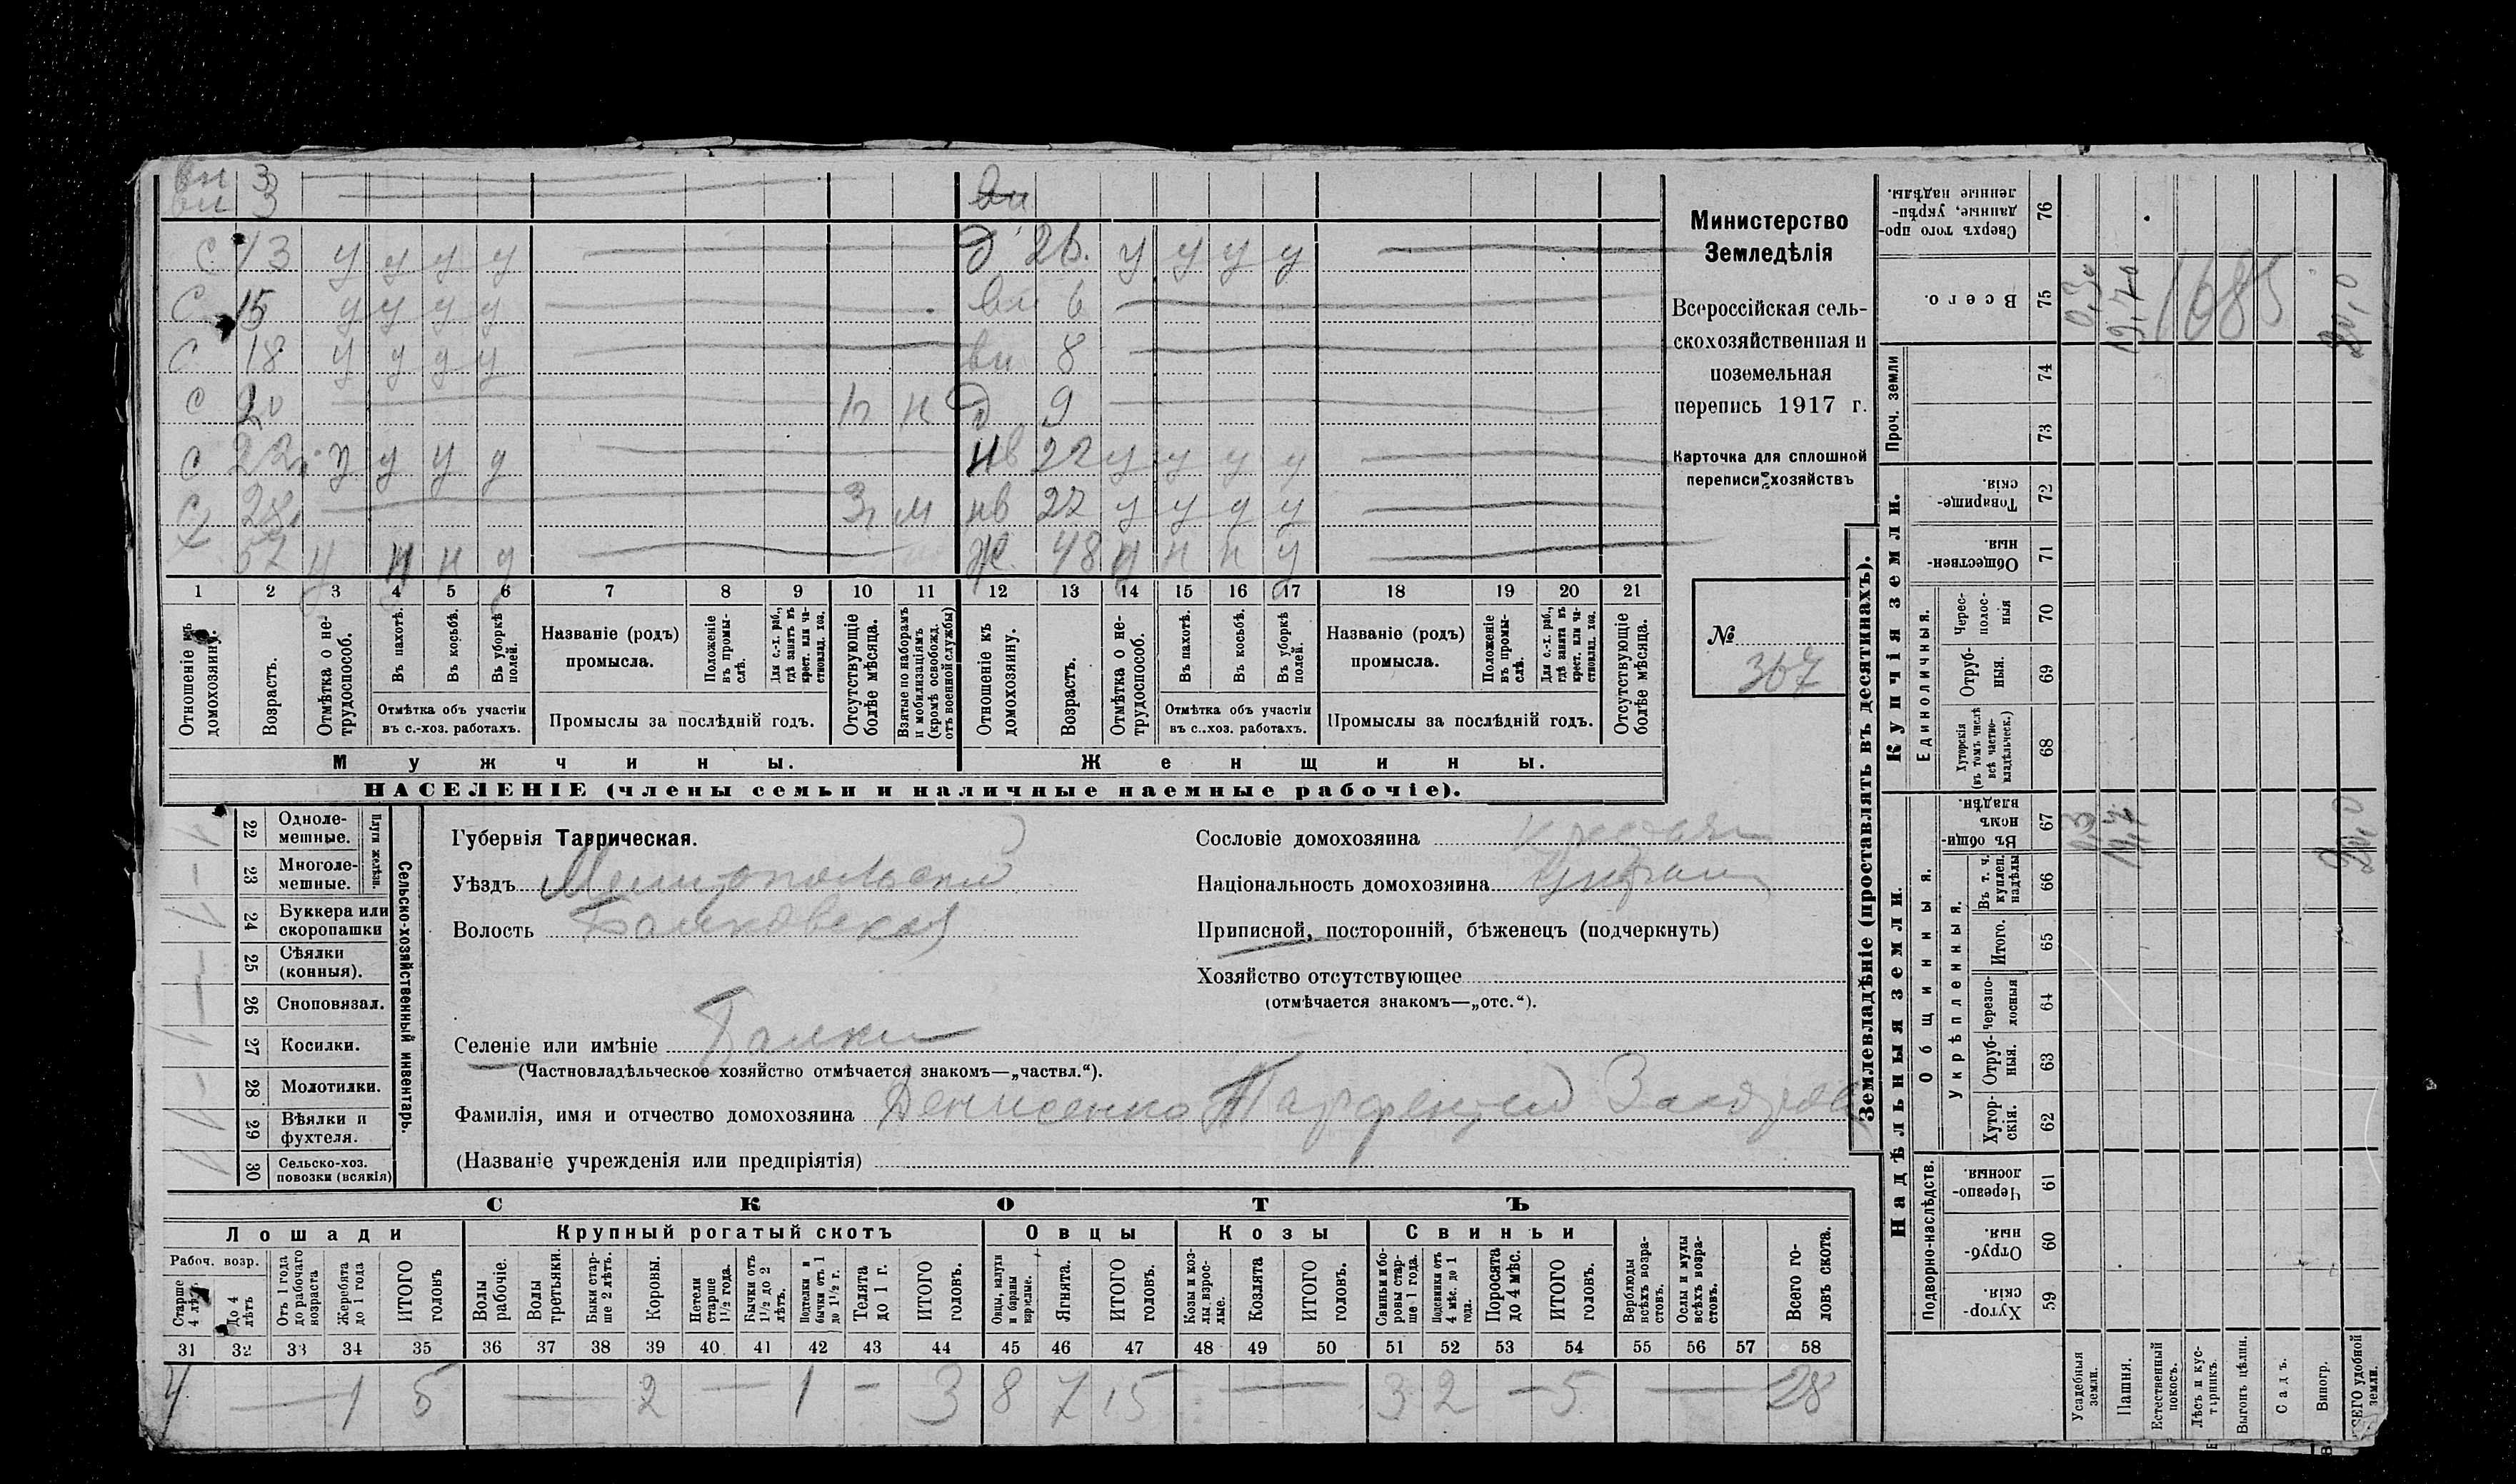 вн 3 вн
вн 3
с 13 у у у у д 26. у у у у
с 15 у у у у вн 6
с 18 у у у у вн 8
с 20 н д 9
с 22 у у у у нв 22 у у у у
с 28 м нв 22 у у у у
57 н у ж 48 н н у
1 2 3 4 5 6 7 8 9 10 11 12 13 14 15 16 17 18 19 20 21
Отношеніе къ домохозяину.
Возрастъ.
Отмѣтка о не-трудоспособ.
Въ пахотѣ.
Въ косьбѣ.
Въ уборкѣ полей.
Отмѣтка объ участіи въ с.-хоз. работахъ.
Названіе (родъ) промысла.
Положеніе въ промы-слѣ.
Для с.-х. раб., гдѣ занятъ въ крест. или ча-стновлад. хоз.
Промыслы за послѣдній годъ.
Отсутствующіе болѣе мѣсяца.
Взятые по наборамъ и мобилизаціямъ (кромѣ освобожд. отъ военной службы)
Отношеніе къ домохозяину.
Возрастъ.
Отмѣтка о не-трудоспособ.
Въ пахотѣ.
Въ косьбѣ.
Въ уборкѣ полей.
Отмѣтка объ участіи въ с.-хоз. работахъ.
Названіе (родъ) промысла.
Положеніе въ промы-слѣ.
Для с.-х. раб., гдѣ занята въ крест. или ча-стновлад. хоз.
Промыслы за послѣдній годъ.
Отсутствующіе болѣе мѣсяца.
Мужчины. Женщины.
НАСЕЛЕНІЕ (члены семьи и наличные наемные рабочіе).
Министерство
Земледѣлія
Всероссійская сель-
скохозяйственная и
поземельная
перепись 1917 г.
Карточка для сплошной
переписи хозяйствъ
№
367
Сельско-хозяйственный инвентарь.
Плуги желѣзн.
22 Одноле-мешные. 1
23 Многоле-мешные.
24 Буккера или скоропашки
25 Сѣялки (конныя).
26 Сноповязал.
27 Косилки.
28 Молотилки.
29 Вѣялки и фухтеля.
30 Сельско-хоз. повозки (всякія)
Губернія Таврическая.
Уѣздъ Мелитопольский
Волость Балковская
Селеніе или имѣніе Балки
(Частновладѣльческое хозяйство отмѣчается знакомъ—„частвл.“).
Фамилія, имя и отчество домохозяина Денисенко Парфентий
(Названіе учрежденія или предпріятія)
Сословіе домохозяина
Національность домохозяина
Приписной, посторонній, бѣженецъ (подчеркнуть)
Хозяйство отсутствующее
(отмѣчается знакомъ—„отс.“).
СКОТЪ
Лошади Крупный рогатый скотъ Овцы Козы Свиньи
Рабоч. возр.
Старше 4 лѣтъ
До 4 лѣтъ
Отъ 1 года до рабочаго возраста
Жеребята до 1 года
ИТОГО головъ
Волы рабочіе.
Волы третьяки.
Быки стар-ше 2 лѣтъ.
Коровы.
Нетели старше 1½ года.
Бычки отъ 1½ до 2 лѣтъ.
Подтелки и бычки отъ 1 до 1½ г.
Телята до 1 г.
ИТОГО головъ.
Овцы, валухи и бараны взрослые.
Ягнята.
ИТОГО головъ.
Козы и коз-лы взрос-лые.
Козлята
ИТОГО головъ.
Свиньи и бо-ровы стар-ше 1 года.
Подсвинки отъ 4 мѣс. до 1 года.
Поросята до 4 мѣс.
ИТОГО головъ.
Верблюды всѣхъ возра-стовъ.
Ослы и мулы всѣхъ возра-стовъ.
Всего го-ловъ скота.
31 32 33 34 35 36 37 38 39 40 41 42 43 44 45 46 47 48 49 50 51 52 53 54 55 56 57 58
4 — 1 5 — 2 — 1 - 3 8 7 15 — 3 2 — 5 — 28
Землевладѣніе (проставлять въ десятинахъ).
Надѣльныя земли. Купчія земли.
Подворно-наслѣдств. Общинныя. Укрѣпленныя. Единоличныя. Проч. земли
76 Сверхъ того про-данные, укрѣп-ленные надѣлы.
75 Всего.
74
73
72 Товарище-скія.
71 Обществен-ныя.
70 Черес-полос-ныя
69 Отруб-ныя.
68 Хуторскія (въ томъ числѣ всѣ частно-владѣльческ.)
67 Въ общи-номъ владѣн.
66 Въ т. ч. куплен. надѣлы
65 Итого.
64 Черезпо-лосныя
63 Отруб-ныя.
62 Хутор-скія.
61 Черезпо-лосныя.
60 Отруб-ныя.
59 Хутор-скія.
Усадебныя земли.
Пашня.
Естественный покосъ.
Лѣсъ и кус-тарникъ.
Выгонъ цѣлин.
Садъ.
Виногр.
ВСЕГО удобной земли.
1685